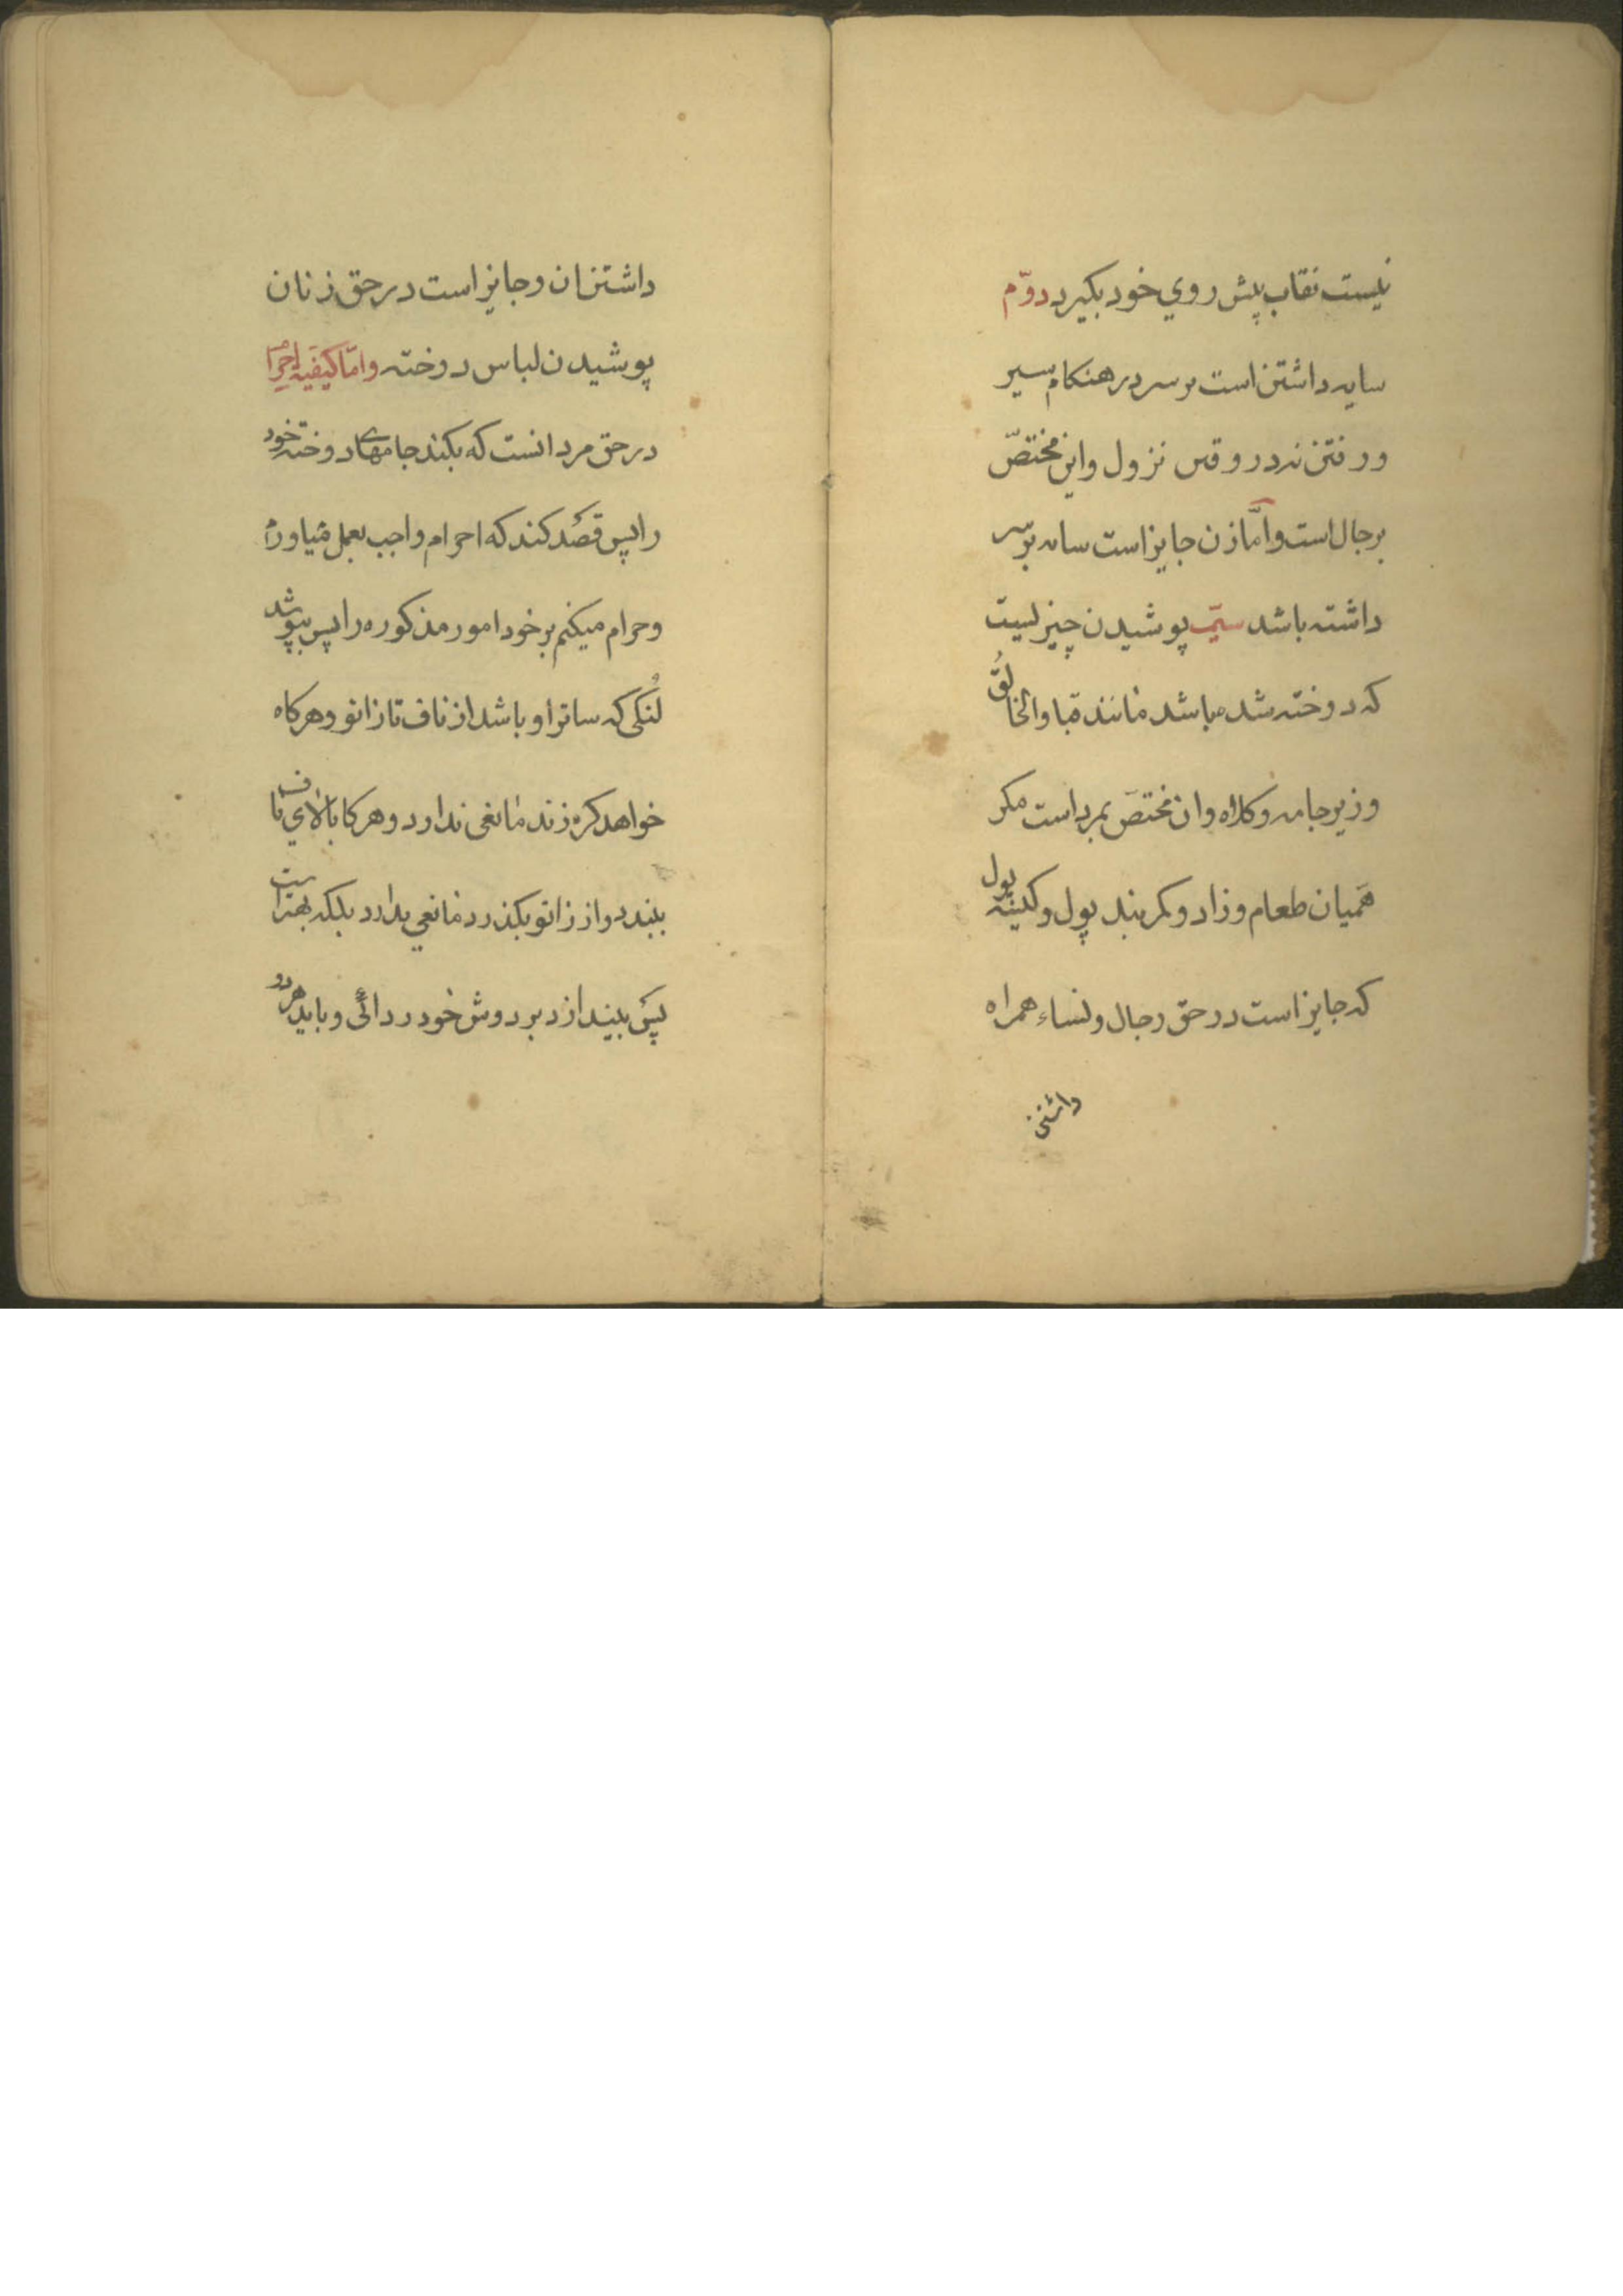 نیست نقاب پیش روی خود بکیرد دوّم
سایه داشتن است بر سر در هنکام سیر
و رفتن نه در وقت نزول و این مختصّ
برجال است و امّا زن جایز است سایه بر سر
داشته باشد سیّم پوشیدن چیزیست
که دوخته شده باشد مانند قبا و الخالُق
و زیرجامه و کلاه و ان مختصّ بمرد است مکر
همیان طعام و زاد و کمربند پول و کیسه پول
که جایز است در حق رجال و نساء همراه
داشتن
داشتن ان و جایز است در حق زنان
پوشیدن لباس دوخته و امّا کیفیة احرام
در حق مرد انست که بکند جامهای دوخته خود
را پس قصد کند که احرام واجب بعمل میاورم
و حرام میکنم بر خود امور مذکوره را پس بپوشد
لُنکی که ساتر او باشد از ناف تا زانو و هرکاه
خواهد کره زند مانعی ندارد و هرکا بالای ناف
ببندد و از زانو بکذرد مانعی ندارد بلکه بهتر است
پس بیندازد بر دوش خود ردائی و باید هر دو